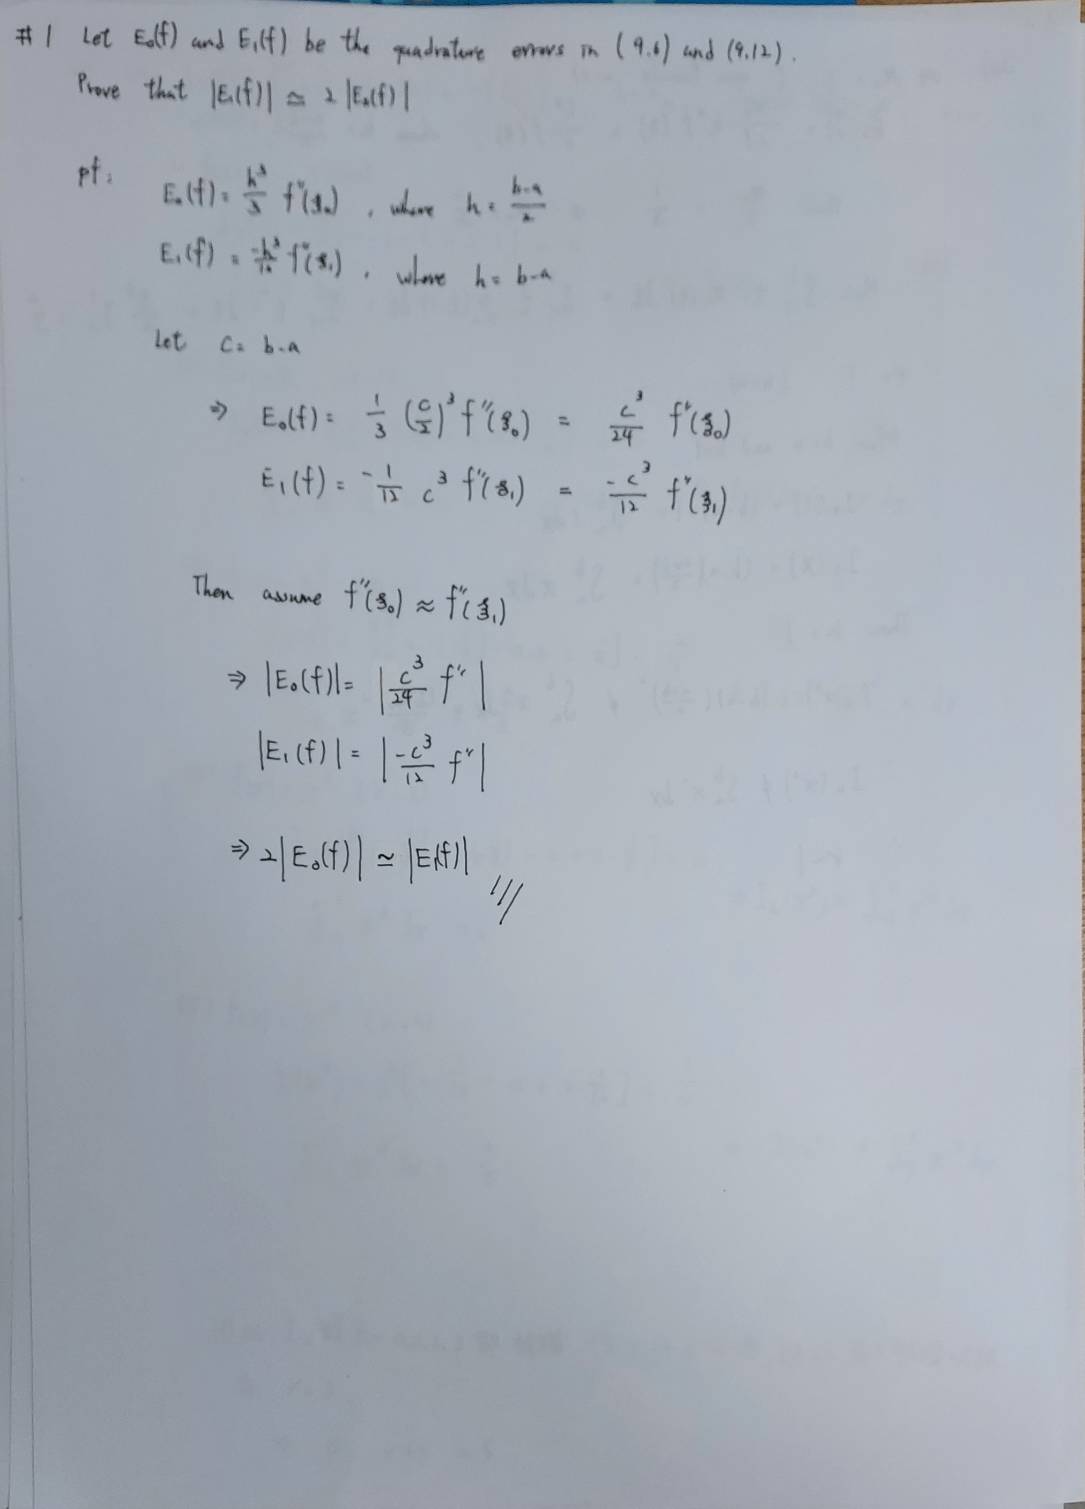 #1 Let E₀(f) and E₁(f) be the quadrature errors in (9.6) and (9.12).
Prove that |E₁(f)| ≃ 2|E₀(f)|
pf:
E₀(f) = h³/3 f''(ξ₀), where h = (b-a)/2
E₁(f) = -h³/12 f''(ξ₁), where h = b-a
Let c = b-a
⇒ E₀(f) = 1/3 (c/2)³ f''(ξ₀) = c³/24 f''(ξ₀)
E₁(f) = -1/12 c³ f''(ξ₁) = -c³/12 f''(ξ₁)
Then assume f''(ξ₀) ≈ f''(ξ₁)
⇒ |E₀(f)| = |c³/24 f''|
|E₁(f)| = |-c³/12 f''|
⇒ 2|E₀(f)| ≃ |E₁(f)|